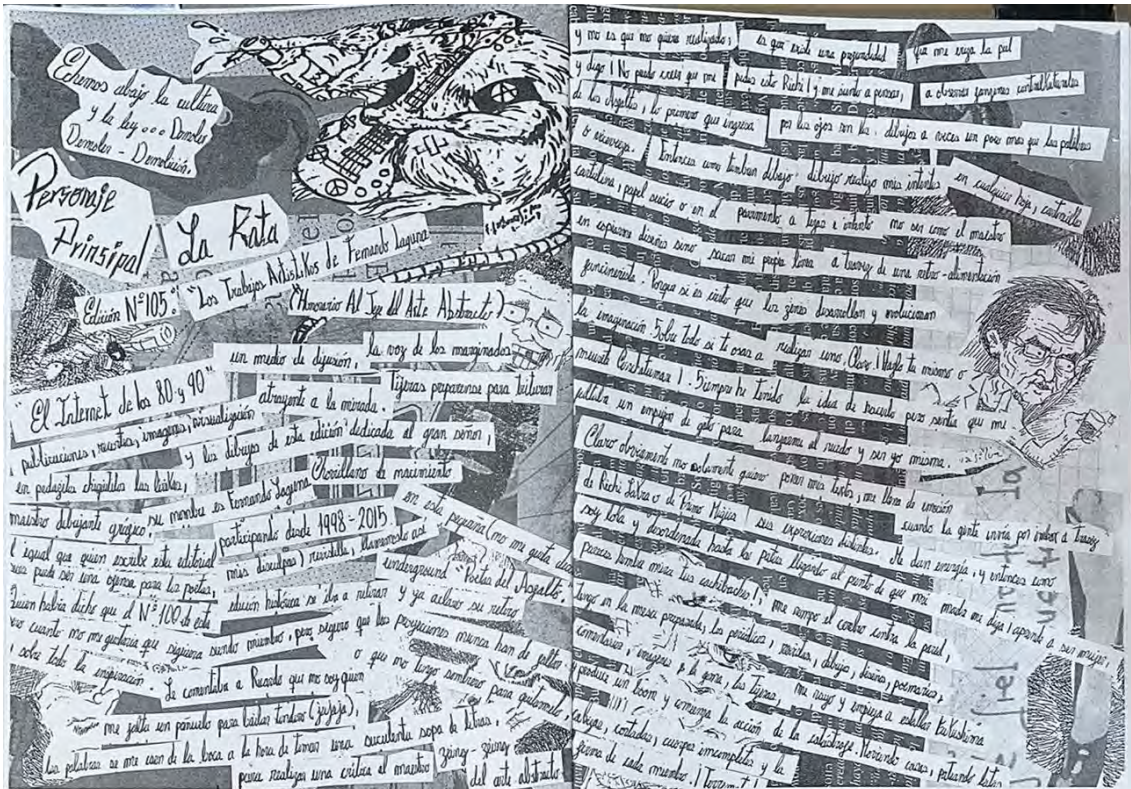 Echemos abajo la cultura
y la ley... Demoler
Demoler - Demolición.
Personaje
Prinsipal
La Rata
Edición N°105: "Los Trabajos ArtistiKos de Fernando Laguna
(Honorario Al Jefe del Arte Abstracto)
"El Internet de los 80 y 90"
un medio de difusión, la voz de los marginados
publicaciones, recortes, imagenes, visualización
atrayente a la mirada. Tijeras preparense para triturar
en pedazitos chiquititos las,
y los dibujos de esta edición dedicada al gran señor,
maestro dibujante grafico, su nombre es Fernando Laguna Chorillano de nacimiento
igual que quien escribe esta editorial participando desde 1998-2015.
en esta pequeña (no me gusta
puede ser una ofensa para los poetas, mis disculpas) revistilla, llamemoslo asi
underground "Poetas del Asfalto".
Quien habia dicho que el N°100 de esta edición histórica se iba a retirar y ya aclaro su retiro
cuanto me gustaria que siguiera siendo miembro, pero seguro que las proyecciones nunca han de faltar
sobre todo la inspiración. Le comentaba a Ricardo que no soy quien
o que no tengo sombrero para quitarmelo,
me falta un pañuelo para bailar tondero (jajaja),
las palabras se me caen de la boca a la hora de tomar una suculenta sopa de letras,
para realizar una critica al maestro
del arte abstracto
y no es que no quiera realizarlo, es que existe una profundidad que me eriza la piel
y digo ¡No puedo creer que me pidas esto Richi! y me siento a pensar, a observar fanzines contraKulturales
de los Asfaltos, lo primero que ingresa por los ojos son los dibujos a veces un poco mas que las palabras
o viceversa. Entonces como tambien dibujo - dibujo realizo mis intentos en cualquier hoja, cartoncillo
cartulina, papel sucio o en el pavimento a tizas e intento no ser como el maestro
en copiarme diseños sino sacar mi propia linea a traavez de una retro-alimentación
fanzineriste. Porque si es cierto que los zines desarrollan y evolucionan
la imaginación Sobre todo si te osas a realizar uno. Claro ¡Hazlo tu mismo o
muerete! Siempre he tenido la idea de hacerlo pero sentia que me
faltaba un empujon de para lanzarme al ruedo y ser yo misma.
Claro obviamente no solamente quiero poner mis textos, me llena de emoción
cuando la gente envia por inbox a travez
de Richi Lakra o de Primo Mujica sus expresiones distintas. Me dan energia, y entonces como
soy lota y desordenada hasta las patas llegando al punto de que mi madre me dija ¡aprende a ser mujer,
pareces hombre mira tus cachibaches!, me rompo el coco contra la pared,
tengo en la mesa preparada, los periodicos, revistas, dibujos, diseños, poemarios,
comentarios, imagenes, la goma, las tijeras, me rayo y empieza a estallar
y produce un boom y comienza la acción de la catastrofe. cosas, pateando latas
cabezas, cortadas, cuerpos incompletos y la
pierna de cada muerto.